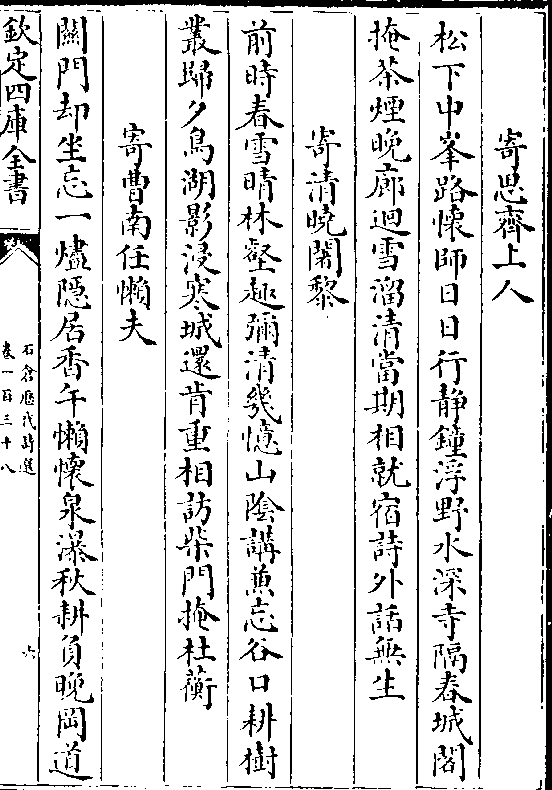 寄思齊上人
松下中峯路懷師日日行靜鐘浮野水深寺隔春城閣
掩茶煙晚廊迴雪溜清當期相就宿詩外話無生
寄清曉闍黎
前時春雪晴林壑趣彌清幾憶山陰講兼忘谷口耕樹
叢歸夕鳥湖影浸寒城還肯重相訪柴門掩杜蘅
寄曹南任懶夫
關門却坐忘一爐隱居香午懶懷泉瀑秋耕負晚岡道
欽定四庫全書
石倉歷代詩選
卷一百三十八
六